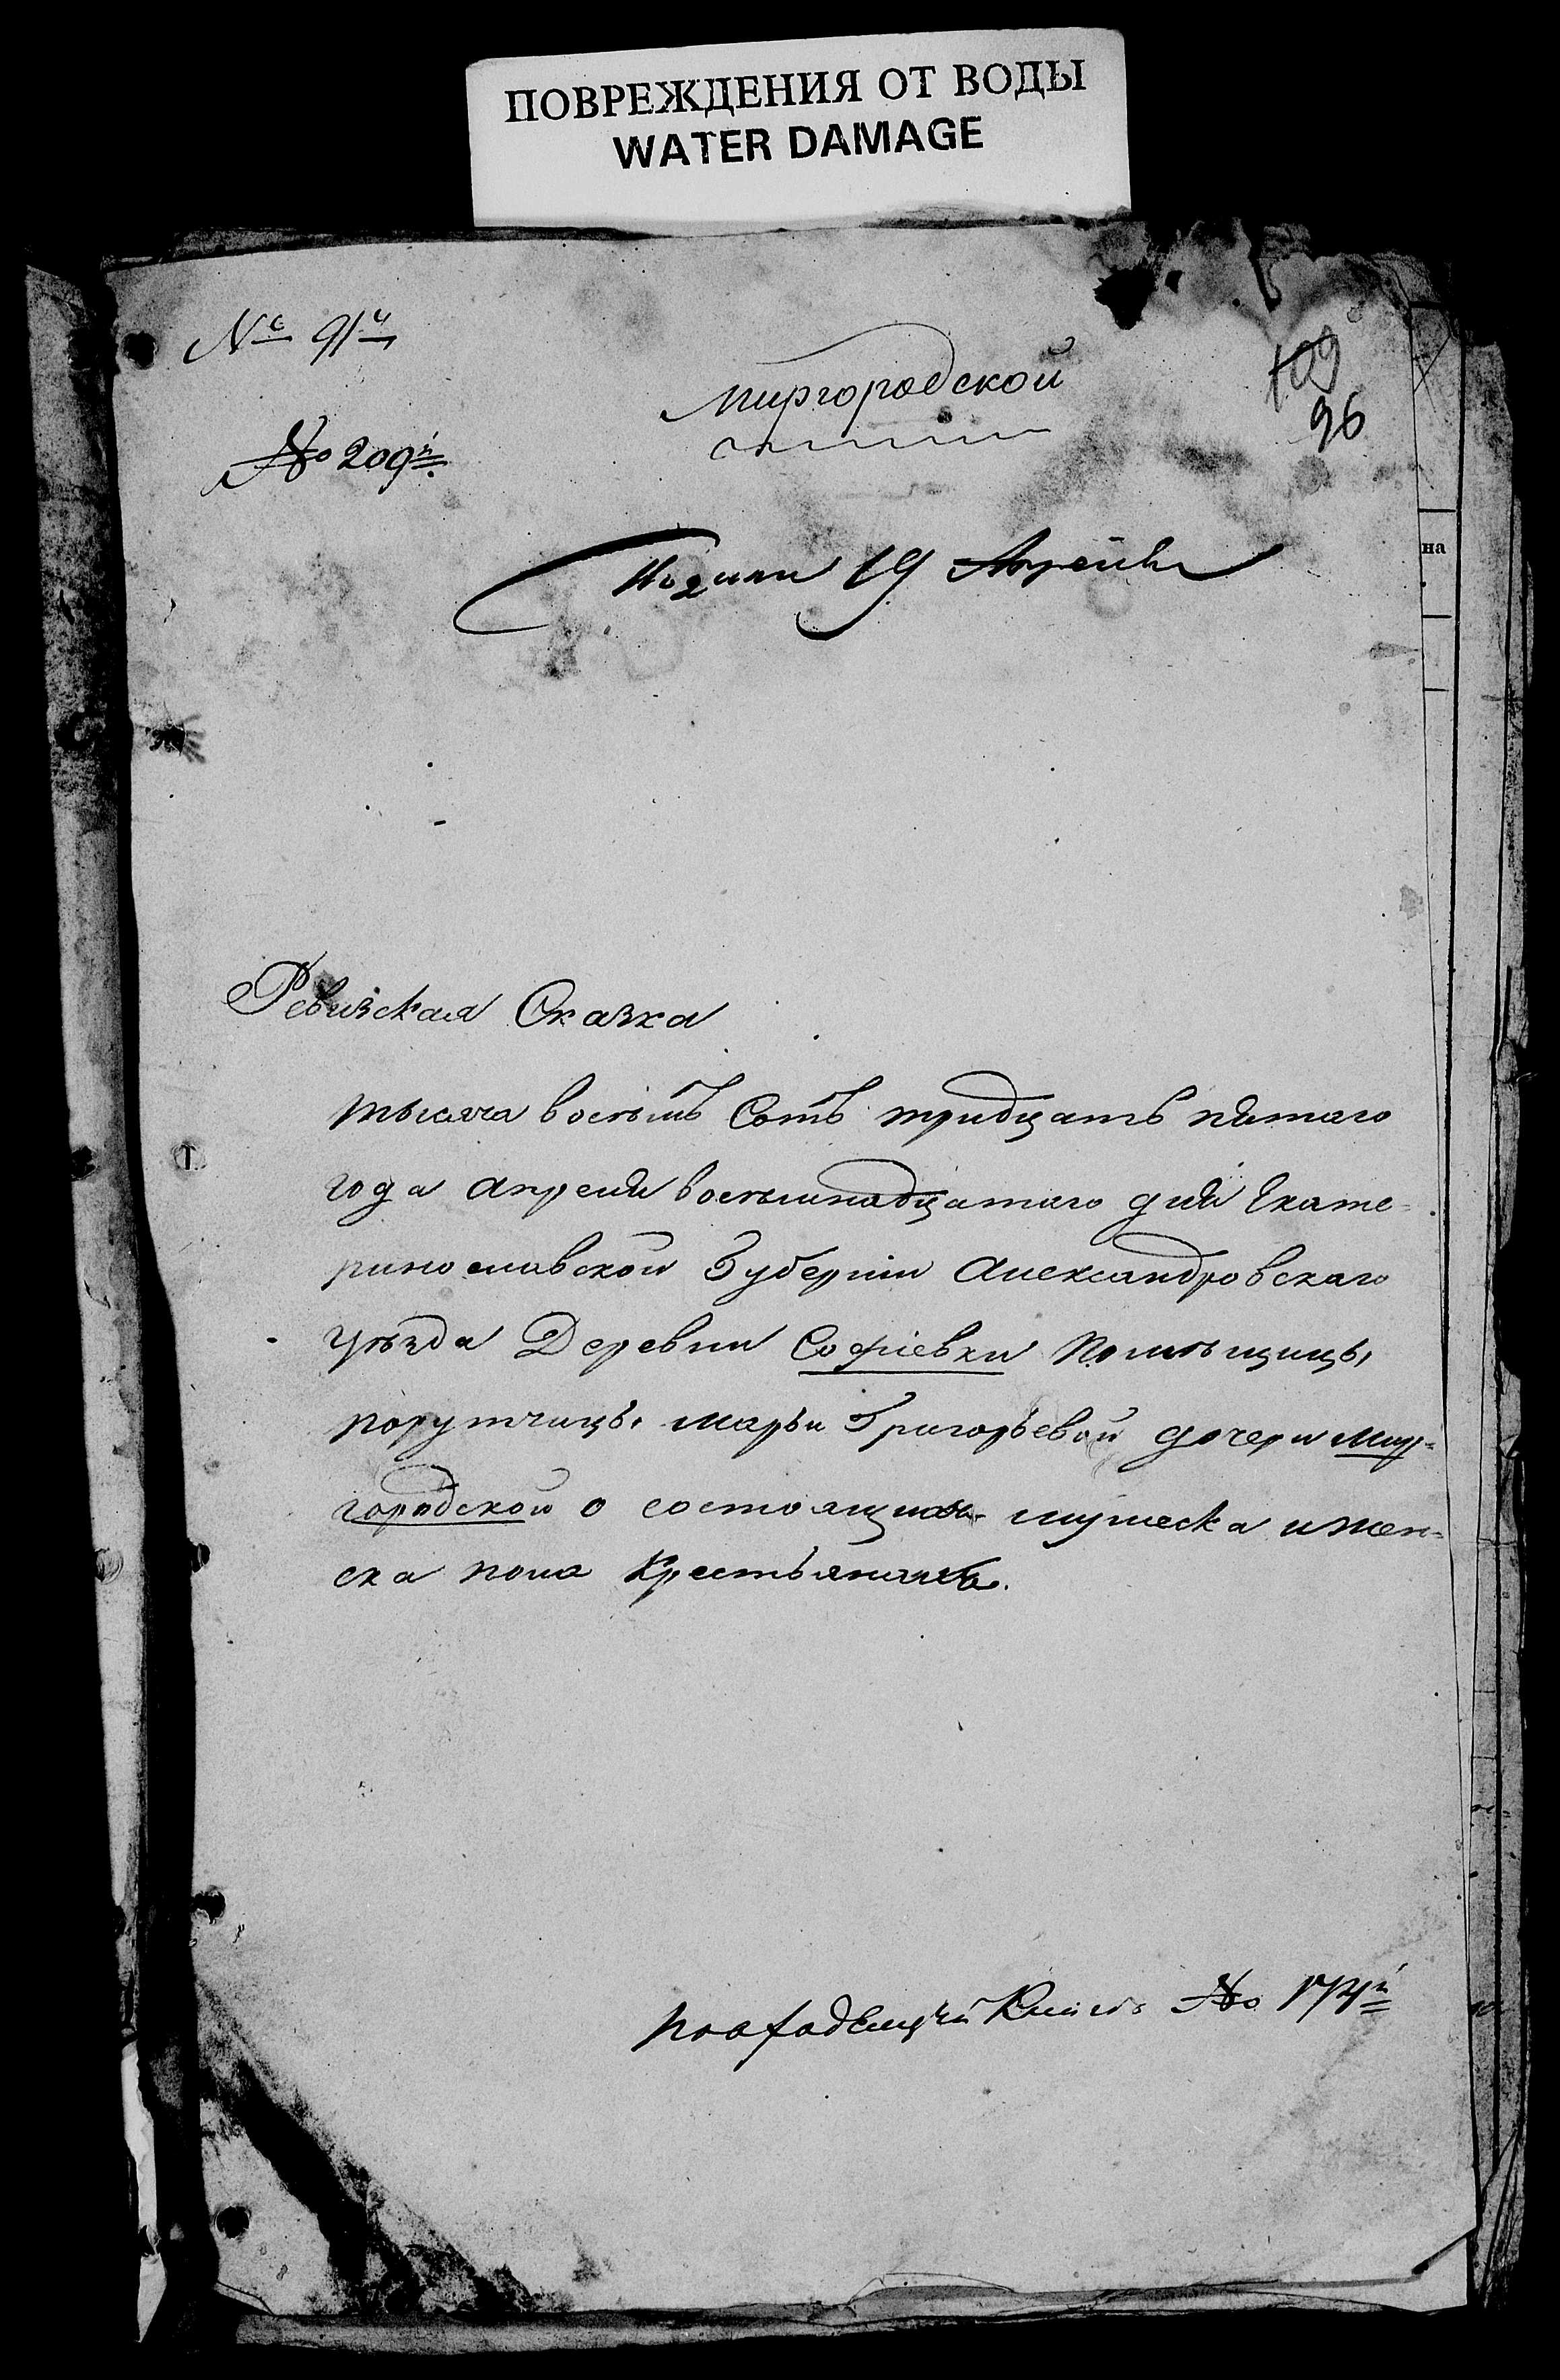 ПОВРЕЖДЕНИЯ ОТ ВОДЫ
WATER DAMAGE
№ 91й
Миргородской
109
96
№ 209й
19 Апреля
на
Ревизская Сказка
тысяча восѣмъ Сотъ тридцать пятаго
года апреля восѣмнадцатаго дня Екате-
ринославской Губерніи Александровскаго
уѣзда Деревни Софіевки Помѣщицы
порутчицы Марьи Григорьевой дочери Мир-
городской о состоящихъ мужеска и жен-
ска пола Крестьянахъ.
№